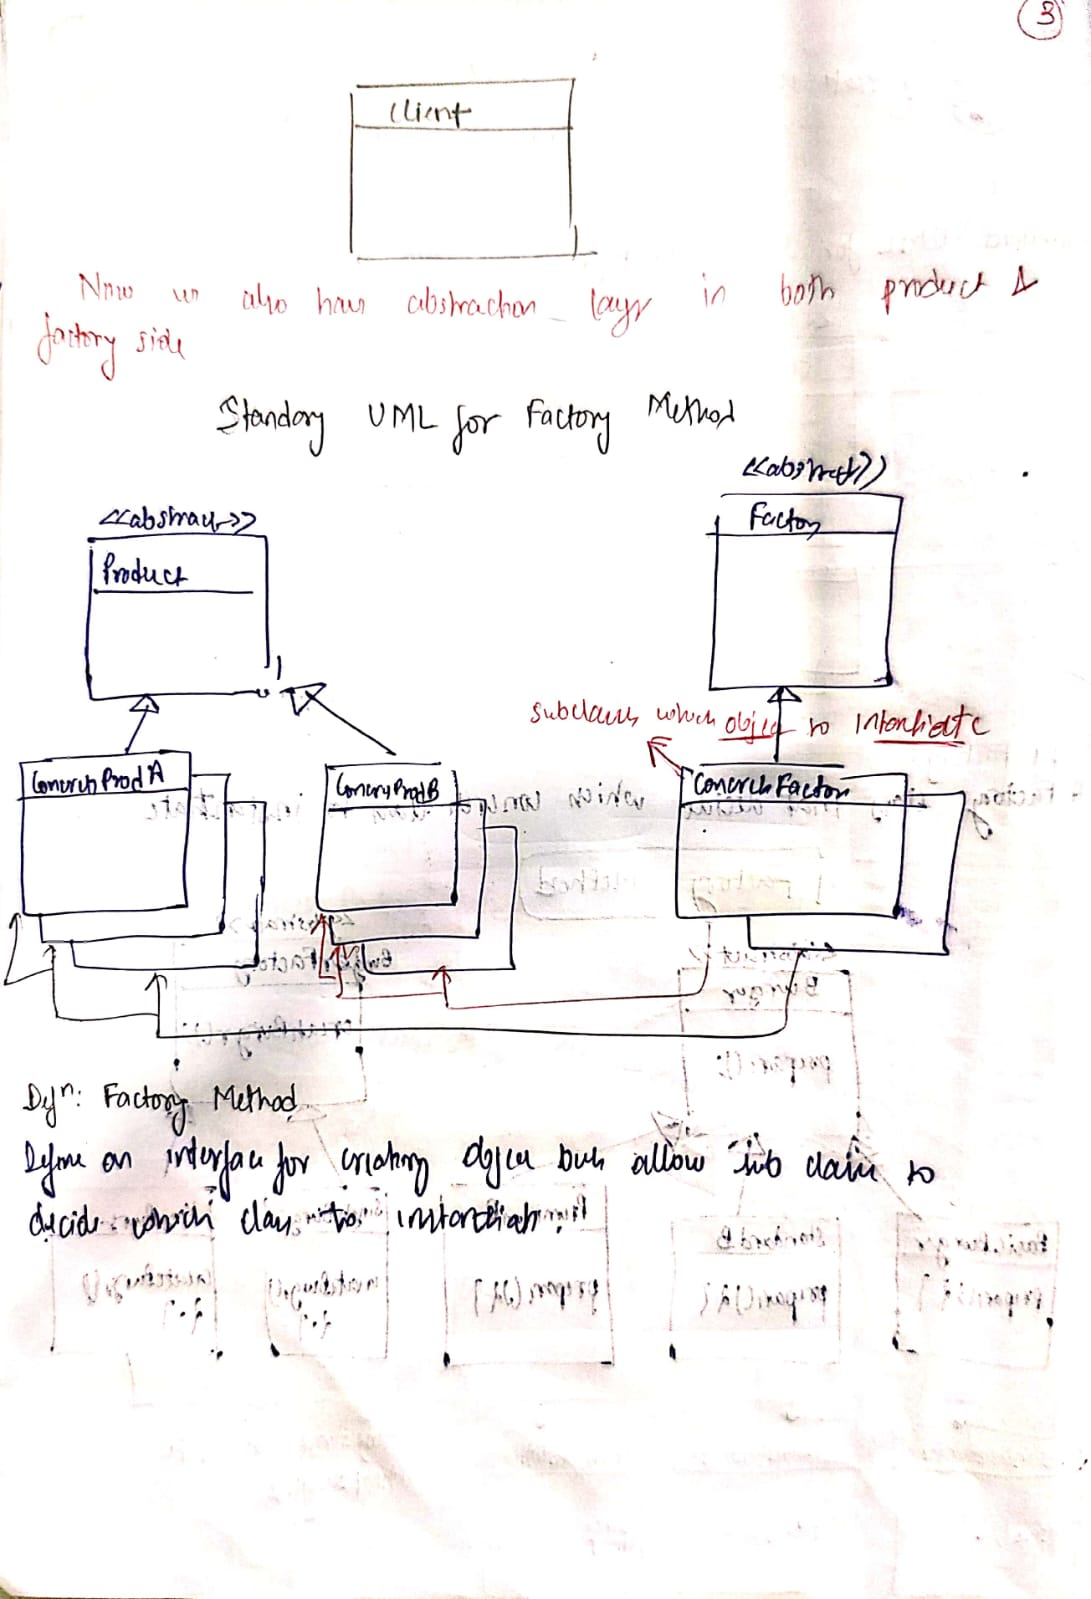 3
Client
Now we also have abstraction layer in both product &
factory side
Standard UML for Factory Method
<<abstract>>
<<abstract>>
Factory
Product
subclass which object to Intantiate
Concrete Prod A
Concre ProdB
Concrete Factory
Dfⁿ: Factory Method
Define an interface for creating object but allow sub class to
decide which class to instantiate.